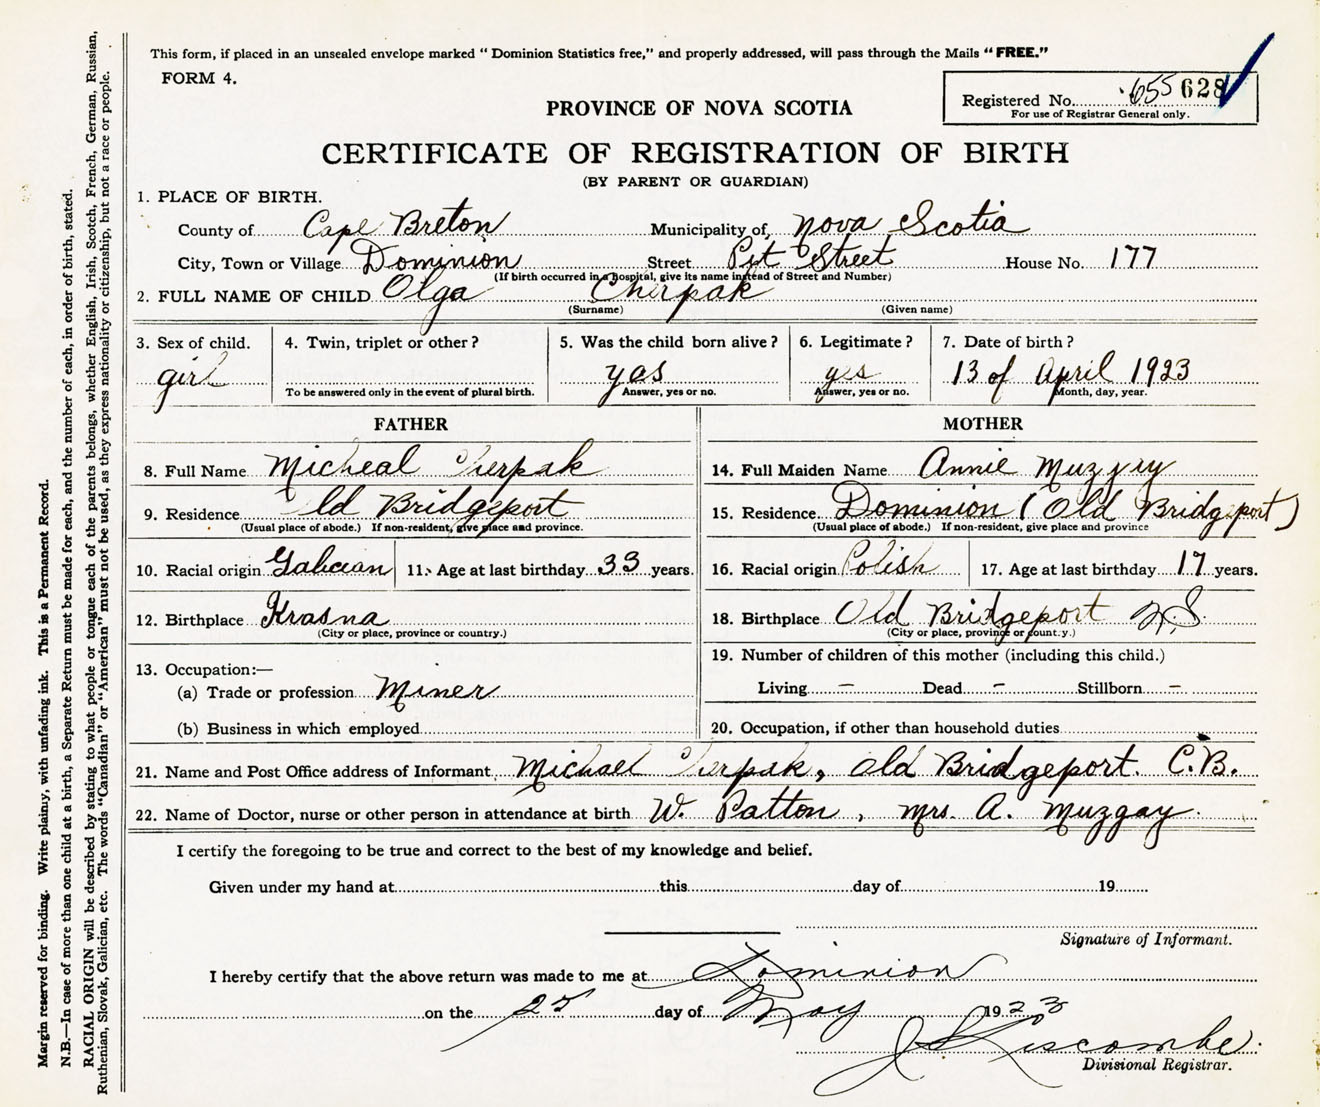 This form, if placed in an unsealed envelope marked "Dominion Statistics free," and properly addressed, will pass through the Mails "FREE."
FORM 4.
Registered No. 655 628
For use of Registrar General only.
PROVINCE OF NOVA SCOTIA
CERTIFICATE OF REGISTRATION OF BIRTH
(BY PARENT OR GUARDIAN)
1. PLACE OF BIRTH.
County of Cape Breton Municipality of Nova Scotia
City, Town or Village Dominion Street Pit Street House No. 177
(If birth occurred in a hospital, give its name instead of Street and Number)
2. FULL NAME OF CHILD Olga Cherpak
(Surname) (Given name)
3. Sex of child. 4. Twin, triplet or other? 5. Was the child born alive? 6. Legitimate? 7. Date of birth?
girl yas yes 13 of April 1923
To be answered only in the event of plural birth. Answer, yes or no. Answer, yes or no. Month, day, year.
FATHER
8. Full Name Micheal Cherpak
9. Residence Old Bridgeport
(Usual place of abode.) If non-resident, give place and province.
10. Racial origin Galician 11. Age at last birthday 33 years.
12. Birthplace Krasna
(City or place, province or country.)
13. Occupation:—
(a) Trade or profession Miner
(b) Business in which employed
MOTHER
14. Full Maiden Name Annie Muzgay
15. Residence Dominion (Old Bridgeport)
(Usual place of abode.) If non-resident, give place and province
16. Racial origin Polish 17. Age at last birthday 17 years.
18. Birthplace Old Bridgeport N.S.
(City or place, province or country.)
19. Number of children of this mother (including this child.)
Living – Dead – Stillborn –
20. Occupation, if other than household duties
21. Name and Post Office address of Informant Michael Cherpak, Old Bridgeport. C.B.
22. Name of Doctor, nurse or other person in attendance at birth W. Patton, Mrs. A. Muzgay.
I certify the foregoing to be true and correct to the best of my knowledge and belief.
Given under my hand at this day of 19
Signature of Informant.
I hereby certify that the above return was made to me at Dominion
on the 25 day of May 1923
J Liscombe.
Divisional Registrar.
Margin reserved for binding. Write plainly, with unfading ink. This is a Permanent Record.
N.B.—In case of more than one child at a birth, a Separate Return must be made for each, and the number of each, in order of birth, stated.
RACIAL ORIGIN will be described by stating to what people or tongue each of the parents belongs, whether English, Irish, Scotch, French, German, Russian,
Ruthenian, Slovak, Galician, etc. The words "Canadian" or "American" must not be used, as they express nationality or citizenship, but not a race or people.